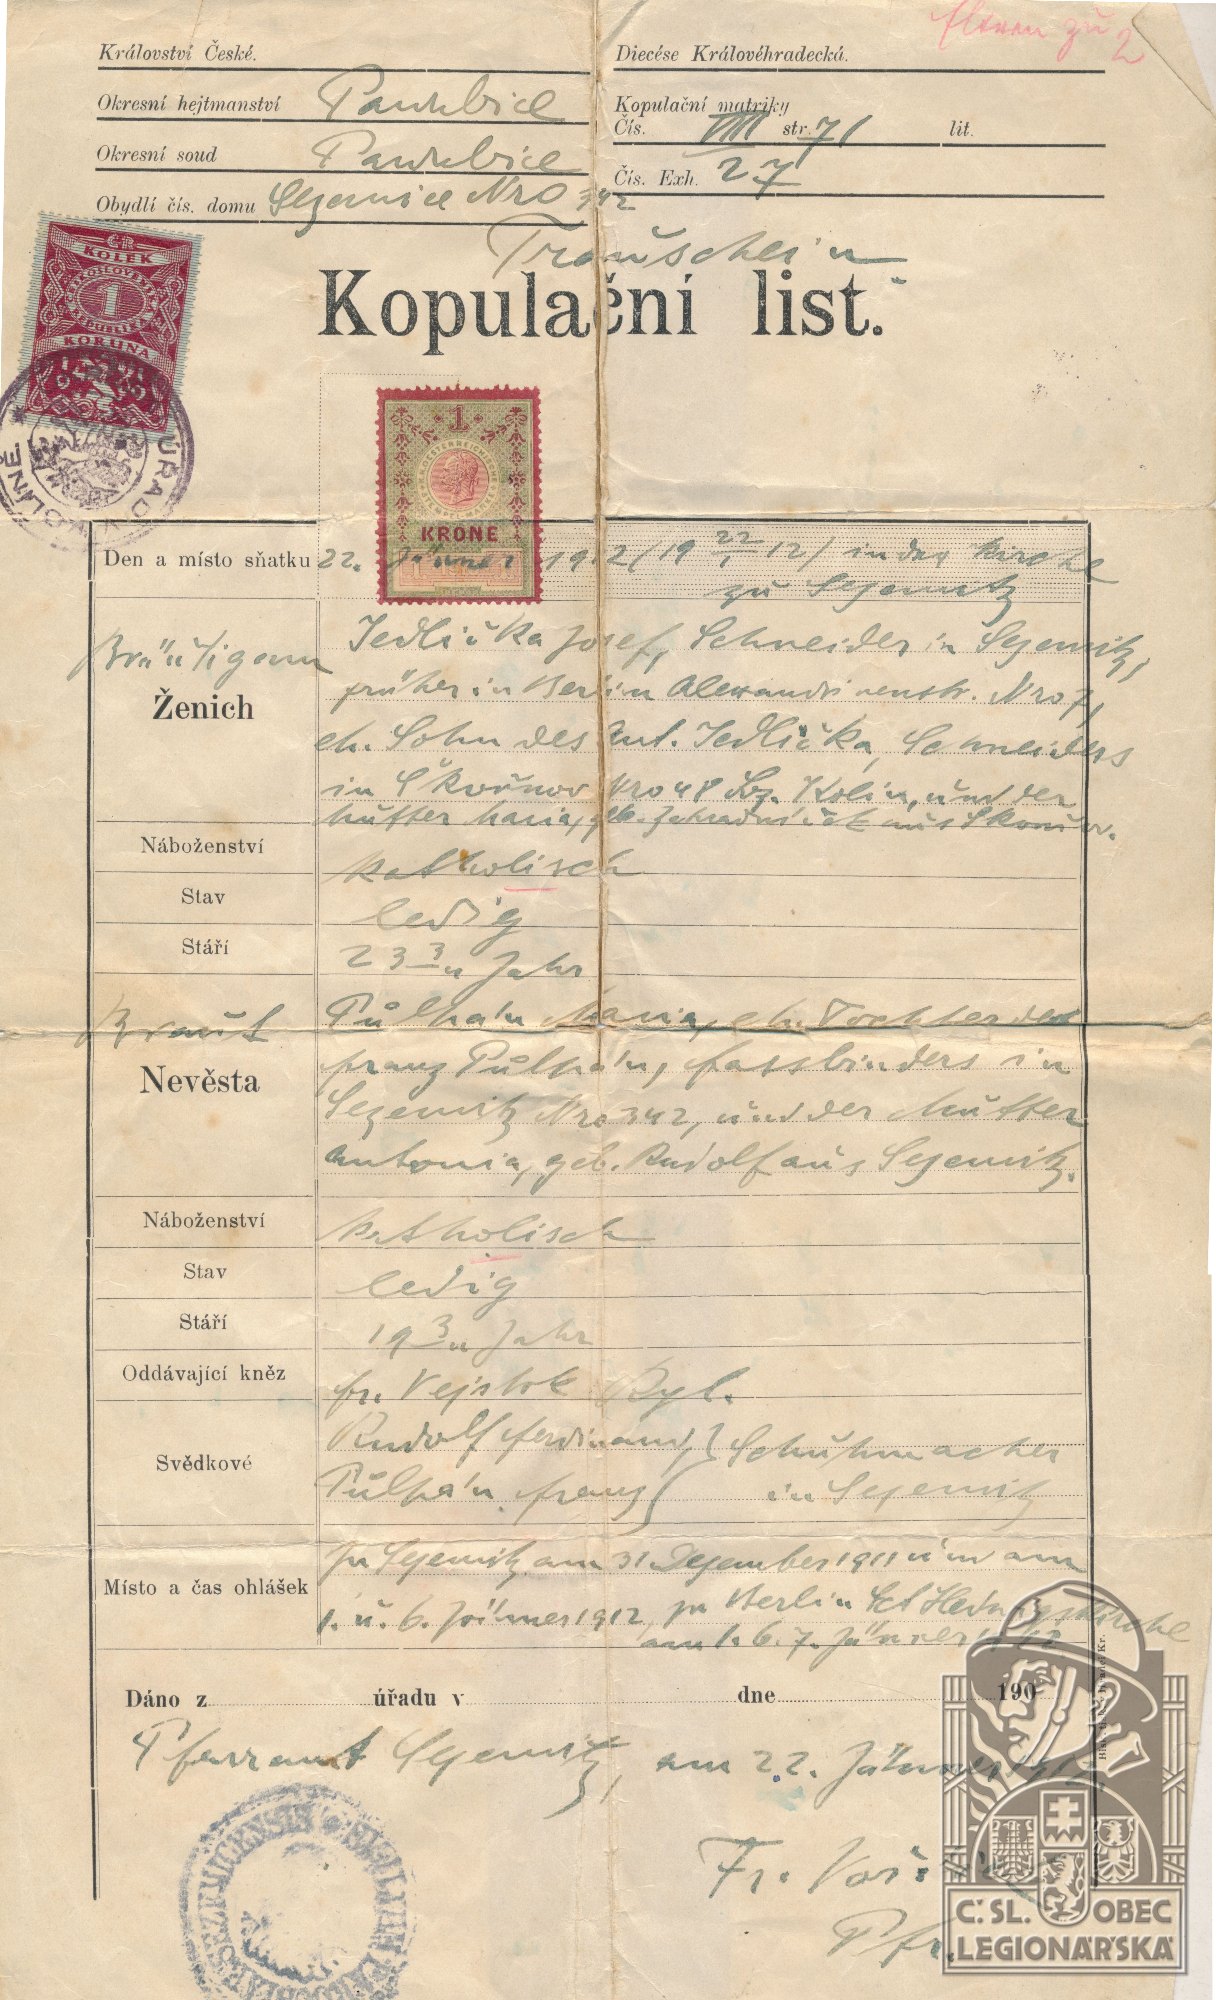 Království České.
Diecése Královéhradecká.
Okresní hejtmanství Pardubice
Kopulační matriky
Čís. VIII str. 71 lit.
Okresní soud Pardubice
Čís. Exh. 27
Obydlí čís. domu Sezemice Nro 342
Trauschein
Kopulační list.
KOLEK
1
KORUNA
1
KRONE
Den a místo sňatku 22. Jänner 1912 (19 22/1 12) in der Kirche
zu Sezemitz
Bräutigam
Ženich
Jedlička Josef, Schneider in Sezemitz,
früher in Berlin Alexandrinenstr. Nro 7,
eh. Sohn des Ant. Jedlička, Schneiders
in Nro 48 Bz. Kolin, und der
Mutter Maria, geb. aus
Náboženství katholisch
Stav ledig
Stáří 23 3/4 Jahr
Braut
Nevěsta
Půlpán Maria, eh. Tochter des
Franz Půlpán, Fassbinders in
Sezemitz Nro 342, und der Mutter
Antonia, geb. Rudolf aus Sezemitz.
Náboženství katholisch
Stav ledig
Stáří 19 3/4 Jahr
Oddávající kněz Fr.
Svědkové
Rudolf Ferdinand } Schuhmacher
Půlpán Franz } in Sezemitz
Místo a čas ohlášek
In Sezemitz am 31 Dezember 1911 und am
1. u. 6. Jänner 1912, zu Berlin Set Hedwigskirche
am 1. 6. 7. Jänner 1912
Dáno z úřadu v dne 190
Pfarramt Sezemitz, am 22. Jänner 1912
Fr.
Pfr.
Č.SL. OBEC
LEGIONÁŘSKÁ